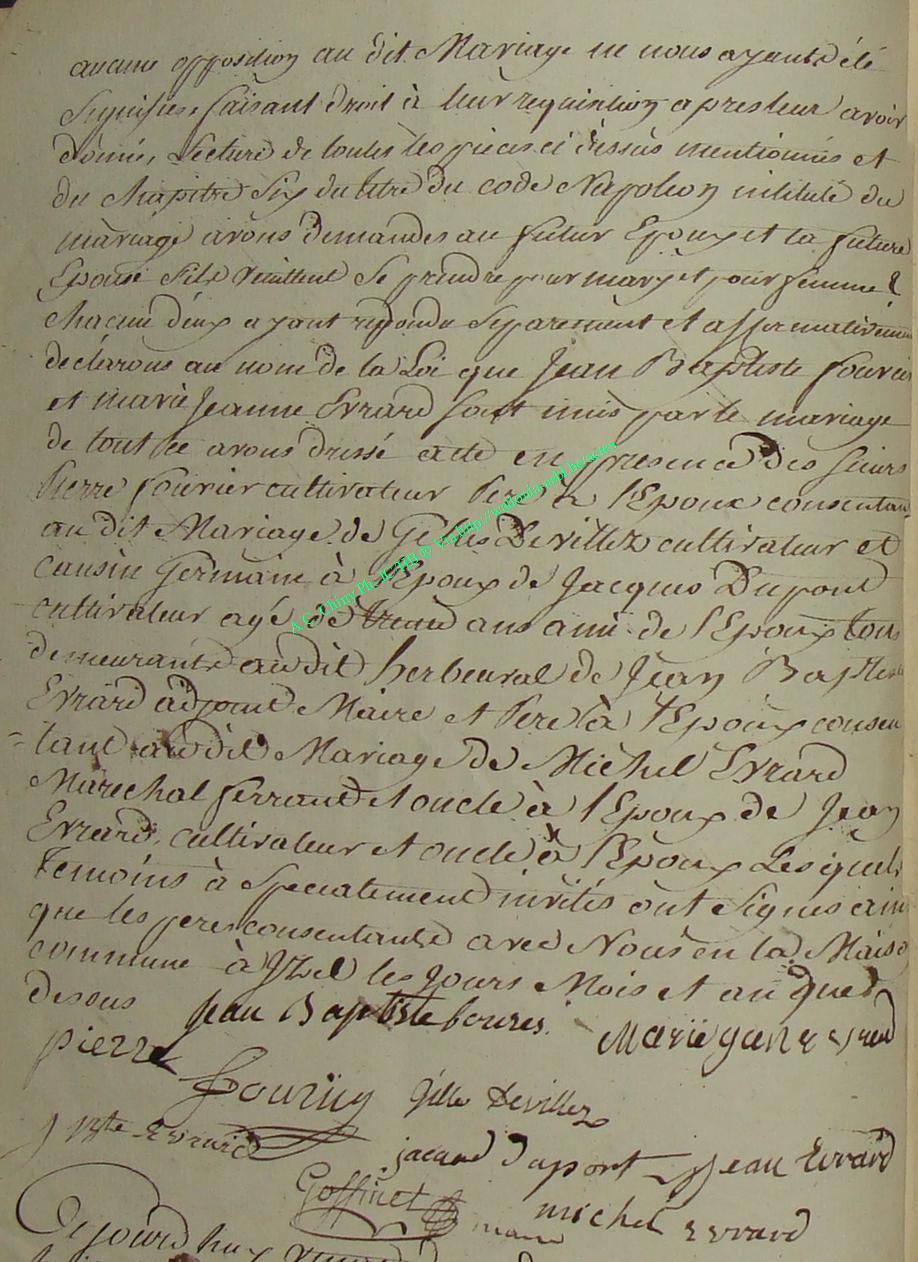 aucune opposition au dit Mariage ne nous ayants été
Signifiée, faisant droit à leur requisition apres leur avoir
donné, Lecture de toutes les pieces ci dessus mentionnés et
du Chapitre Six du titre du code Napoleon intitulé du
mariage avons demandes au futur Epoux et la future
Epouse S'ils veullent Se prendre pour mary et pour femme
chacun d'eux ayant repondu Separement et affirmativement
declarons au nom de la Loi que Jean Baptiste fourier
et marie Jeanne Evrard sont unis par le mariage
de tout ce avons dressé acte en presence des sieurs
Pierre fourier cultivateur Pere à l'Epoux consentant
au dit Mariage de Gilles Devillez cultivateur et
cousin Germain à l'Epoux de Jacques Dupont
cultivateur agé de trente ans ami de l'Epoux tous
demeurants audit herbeuval de Jean Baptiste
Evrard adjoint Maire et Pere à l'Epoux consen
=tant audit Mariage de Michel Evrard
Marechal ferrant et oncle à l'Epoux de Jean
Evrard, cultivateur et oncle à l'Epoux Lesquels
temoins à Specialement invités ont Signés ainsi
que les peres consentants avec Nous en la Maison
commune à Izel les Jours Mois et an que
desous
Jean Baptiste foures. Marie jean evrard
pierre
fouriy Gille Devillez
J Bte Evrard
jacque Dupont Jean Evrard
Goffinet maire michel Evrard
Cejourd'huy
A.G. Chiny Ph.